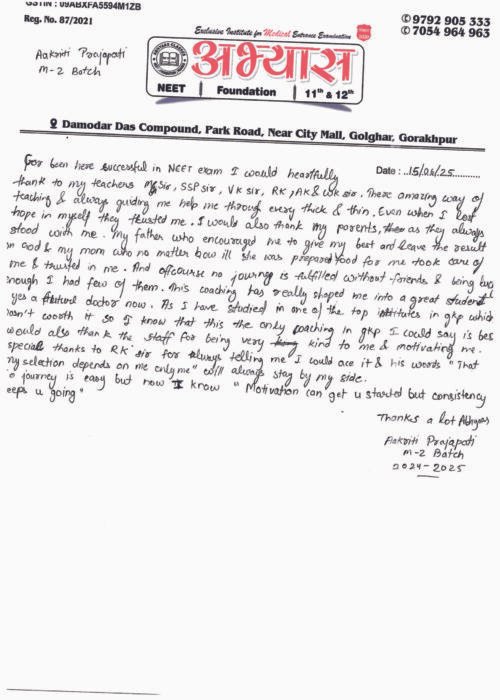 GSTIN : 09ABXFA5594M1ZB
Reg. No. 87/2021
Exclusive Institute for Medical Entrance Examination
✆ 9792 905 333
✆ 7054 964 963
Aakriti Prajapati
M-2 Batch
अभ्यास
NEET | Foundation | 11th & 12th
Damodar Das Compound, Park Road, Near City Mall, Golghar, Gorakhpur
Date : 15/06/25
For been here successful in NEET exam I would heartfully
thank to my teachers MJ sir, SSP sir, VK sir, RK, AK & WK sir. There amazing way of
teaching & always guiding me help me through every thick & thin. Even when I lost
hope in myself they trusted me. I would also thank my parents, as they always
stood with me. My father who encouraged me to give my best and leave the result
on God & my mom who no matter how ill she was prepared food for me took care of
me & trusted in me. And offcourse no journey is fulfilled without friends & being
nough I had few of them. This coaching has really shaped me into a great student
yes a future doctor now. As I have studied in one of the top institutes in gkp which
asn't worth it so I know that this the only coaching in gkp I could say is bes
would also thank the staff for being very kind to me & motivating me.
special thanks to RK sir for always telling me I could ace it & his words "That
my selection depends on me only me" will always stay by my side.
o journey is easy but now I know " Motivation can get u started but consistency
eeps u going"
Thanks a lot Abhyaas
Aakriti Prajapati
M-2 Batch
2024-2025